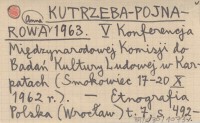 KUTRZEBA-POJNA-
ROWA Anna 1963. V Konferencja
Międzynarodowej Komisji do
Badań Kultury Ludowej w Kar-
patach (Smokowiec 17-20 X
1962 r.). — Etnografia
Polska (Wrocław) t. 7: 492-